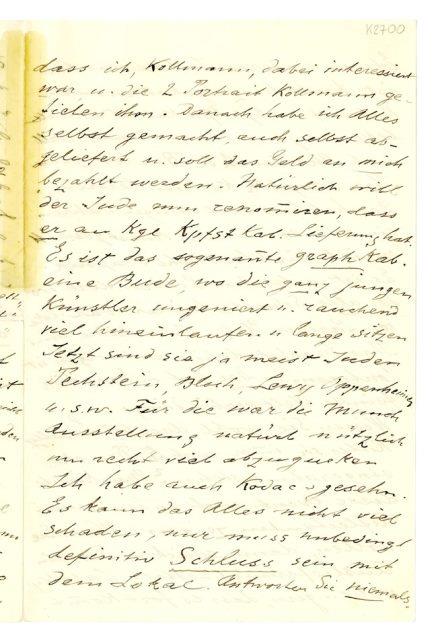 K2700
dass ich, Kollmann, dabei interessiert
war u. die 2 Portrait Kollmann ge-
fielen ihm. Danach habe ich Alles
selbst gemacht, auch selbst ab-
geliefert u. soll das Geld an mich
bezahlt werden. Natürlich will
der Jude nun renomiren, dass
er an Kgl Kpfst Kab. Lieferung hat.
Es ist das sogenante graph Kab.
eine Bude, wo die ganz jungen
Künstler ungeniert u. rauchend
viel hineinlaufen u lange sitzen
Jetzt sind sie ja meist Juden
Pechstein, Bloch, Lewy Oppenheimer
u. s. w. Für die war die Munch
Ausstellung natürl nützlich
um recht viel abzugucken
Ich habe auch Kodac's gesehn.
Es kann das Alles nicht viel
schaden, nur muss unbedingt
definitiv Schluss sein mit
dem Lokal. Antworten Sie niemals.